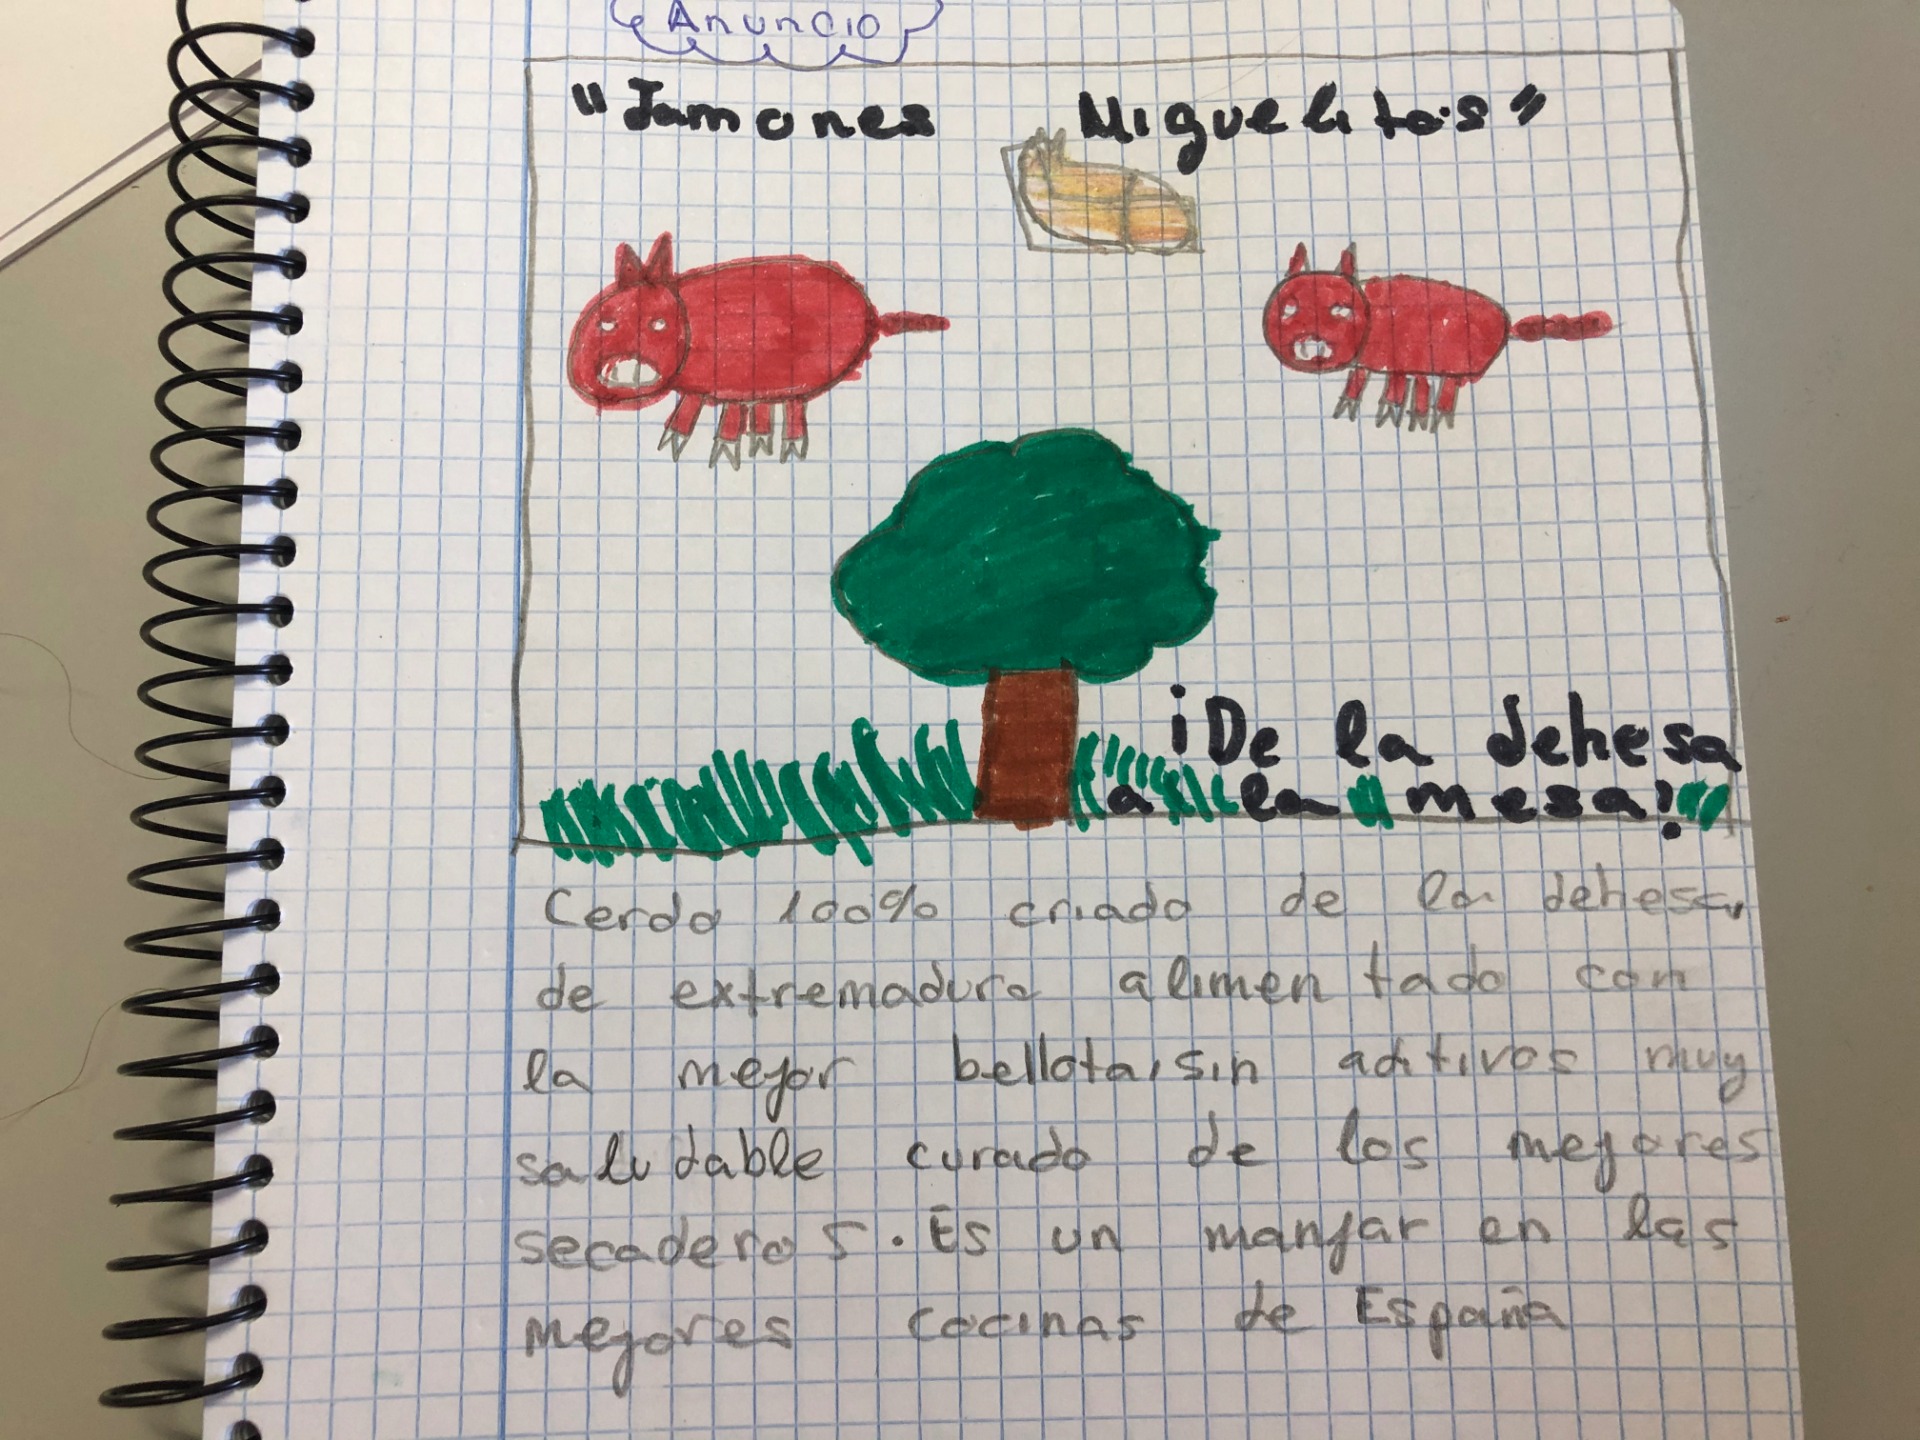 Anuncio
"Jamones Miguelitos"
¡De la dehesa
a la mesa!
Cerdo 100% criado de la dehesa,
de extremadura alimentado con
la mejor bellota, sin aditivos muy
saludable curado de los mejores
secaderos. Es un manjar en las
mejores cocinas de España